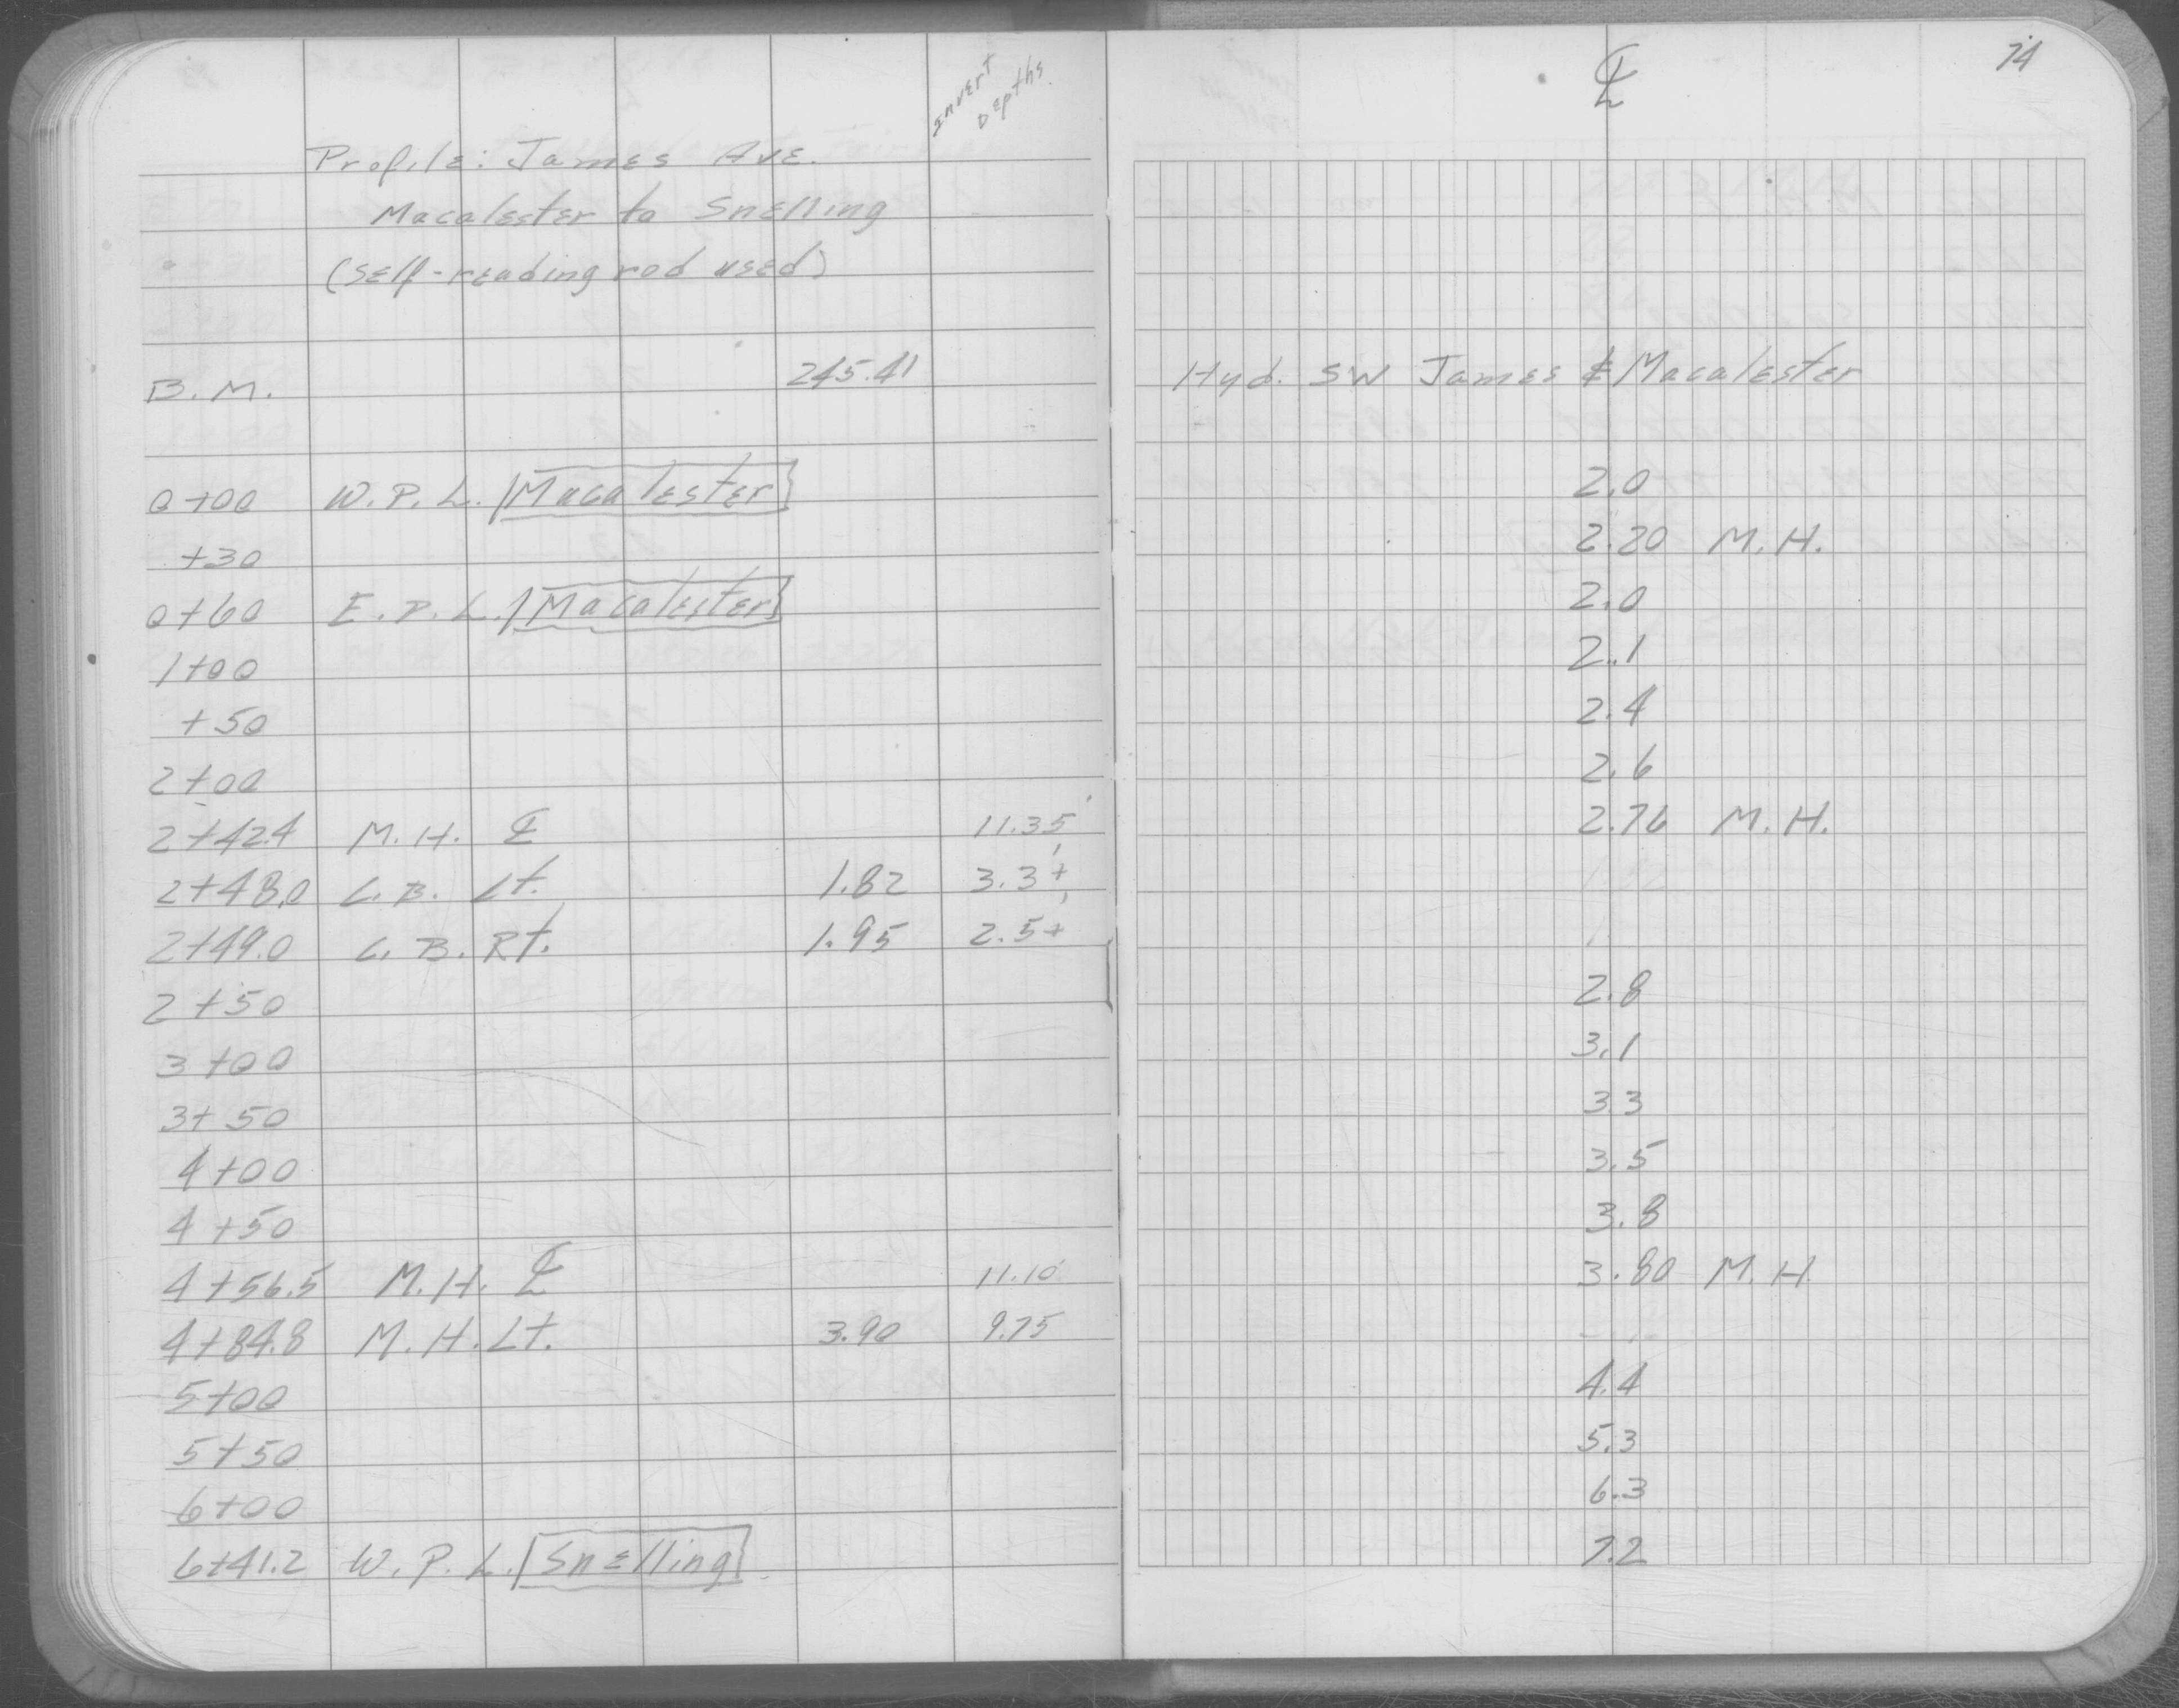 74
℄
Invert
Depths
Profile: James Ave.
Macalester to Snelling
(Self-reading rod used)
B.M. 245.41 Hyd. SW James & Macalester
0+00 W.P.L. Macalester 2.0
+30 2.20 M.H.
0+60 E.P.L. Macalester 2.0
1+00 2.1
+50 2.4
2+00 2.6
2+42.4 M.H. ℄ 11.35' 2.76 M.H.
2+48.0 C.B. Lt. 1.82 3.3'+
2+49.0 C.B. Rt. 1.95 2.5'+
2+50 2.8
3+00 3.1
3+50 3.3
4+00 3.5
4+50 3.8
4+56.5 M.H. ℄ 11.10' 3.80 M.H.
4+84.8 M.H. Lt. 3.90 9.75
5+00 4.4
5+50 5.3
6+00 6.3
6+41.2 W.P.L. Snelling 7.2